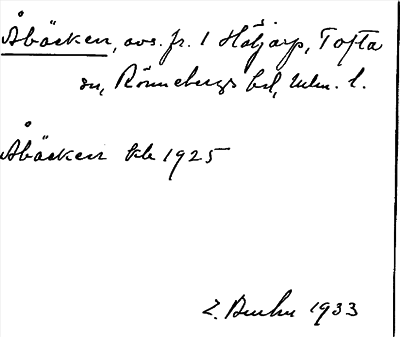 Åbäcken, avs. fr. 1 Häljarp, Tofta
sn, Rönnebergs hd, Mlm. l.
Åbäcken kb 1925
1933